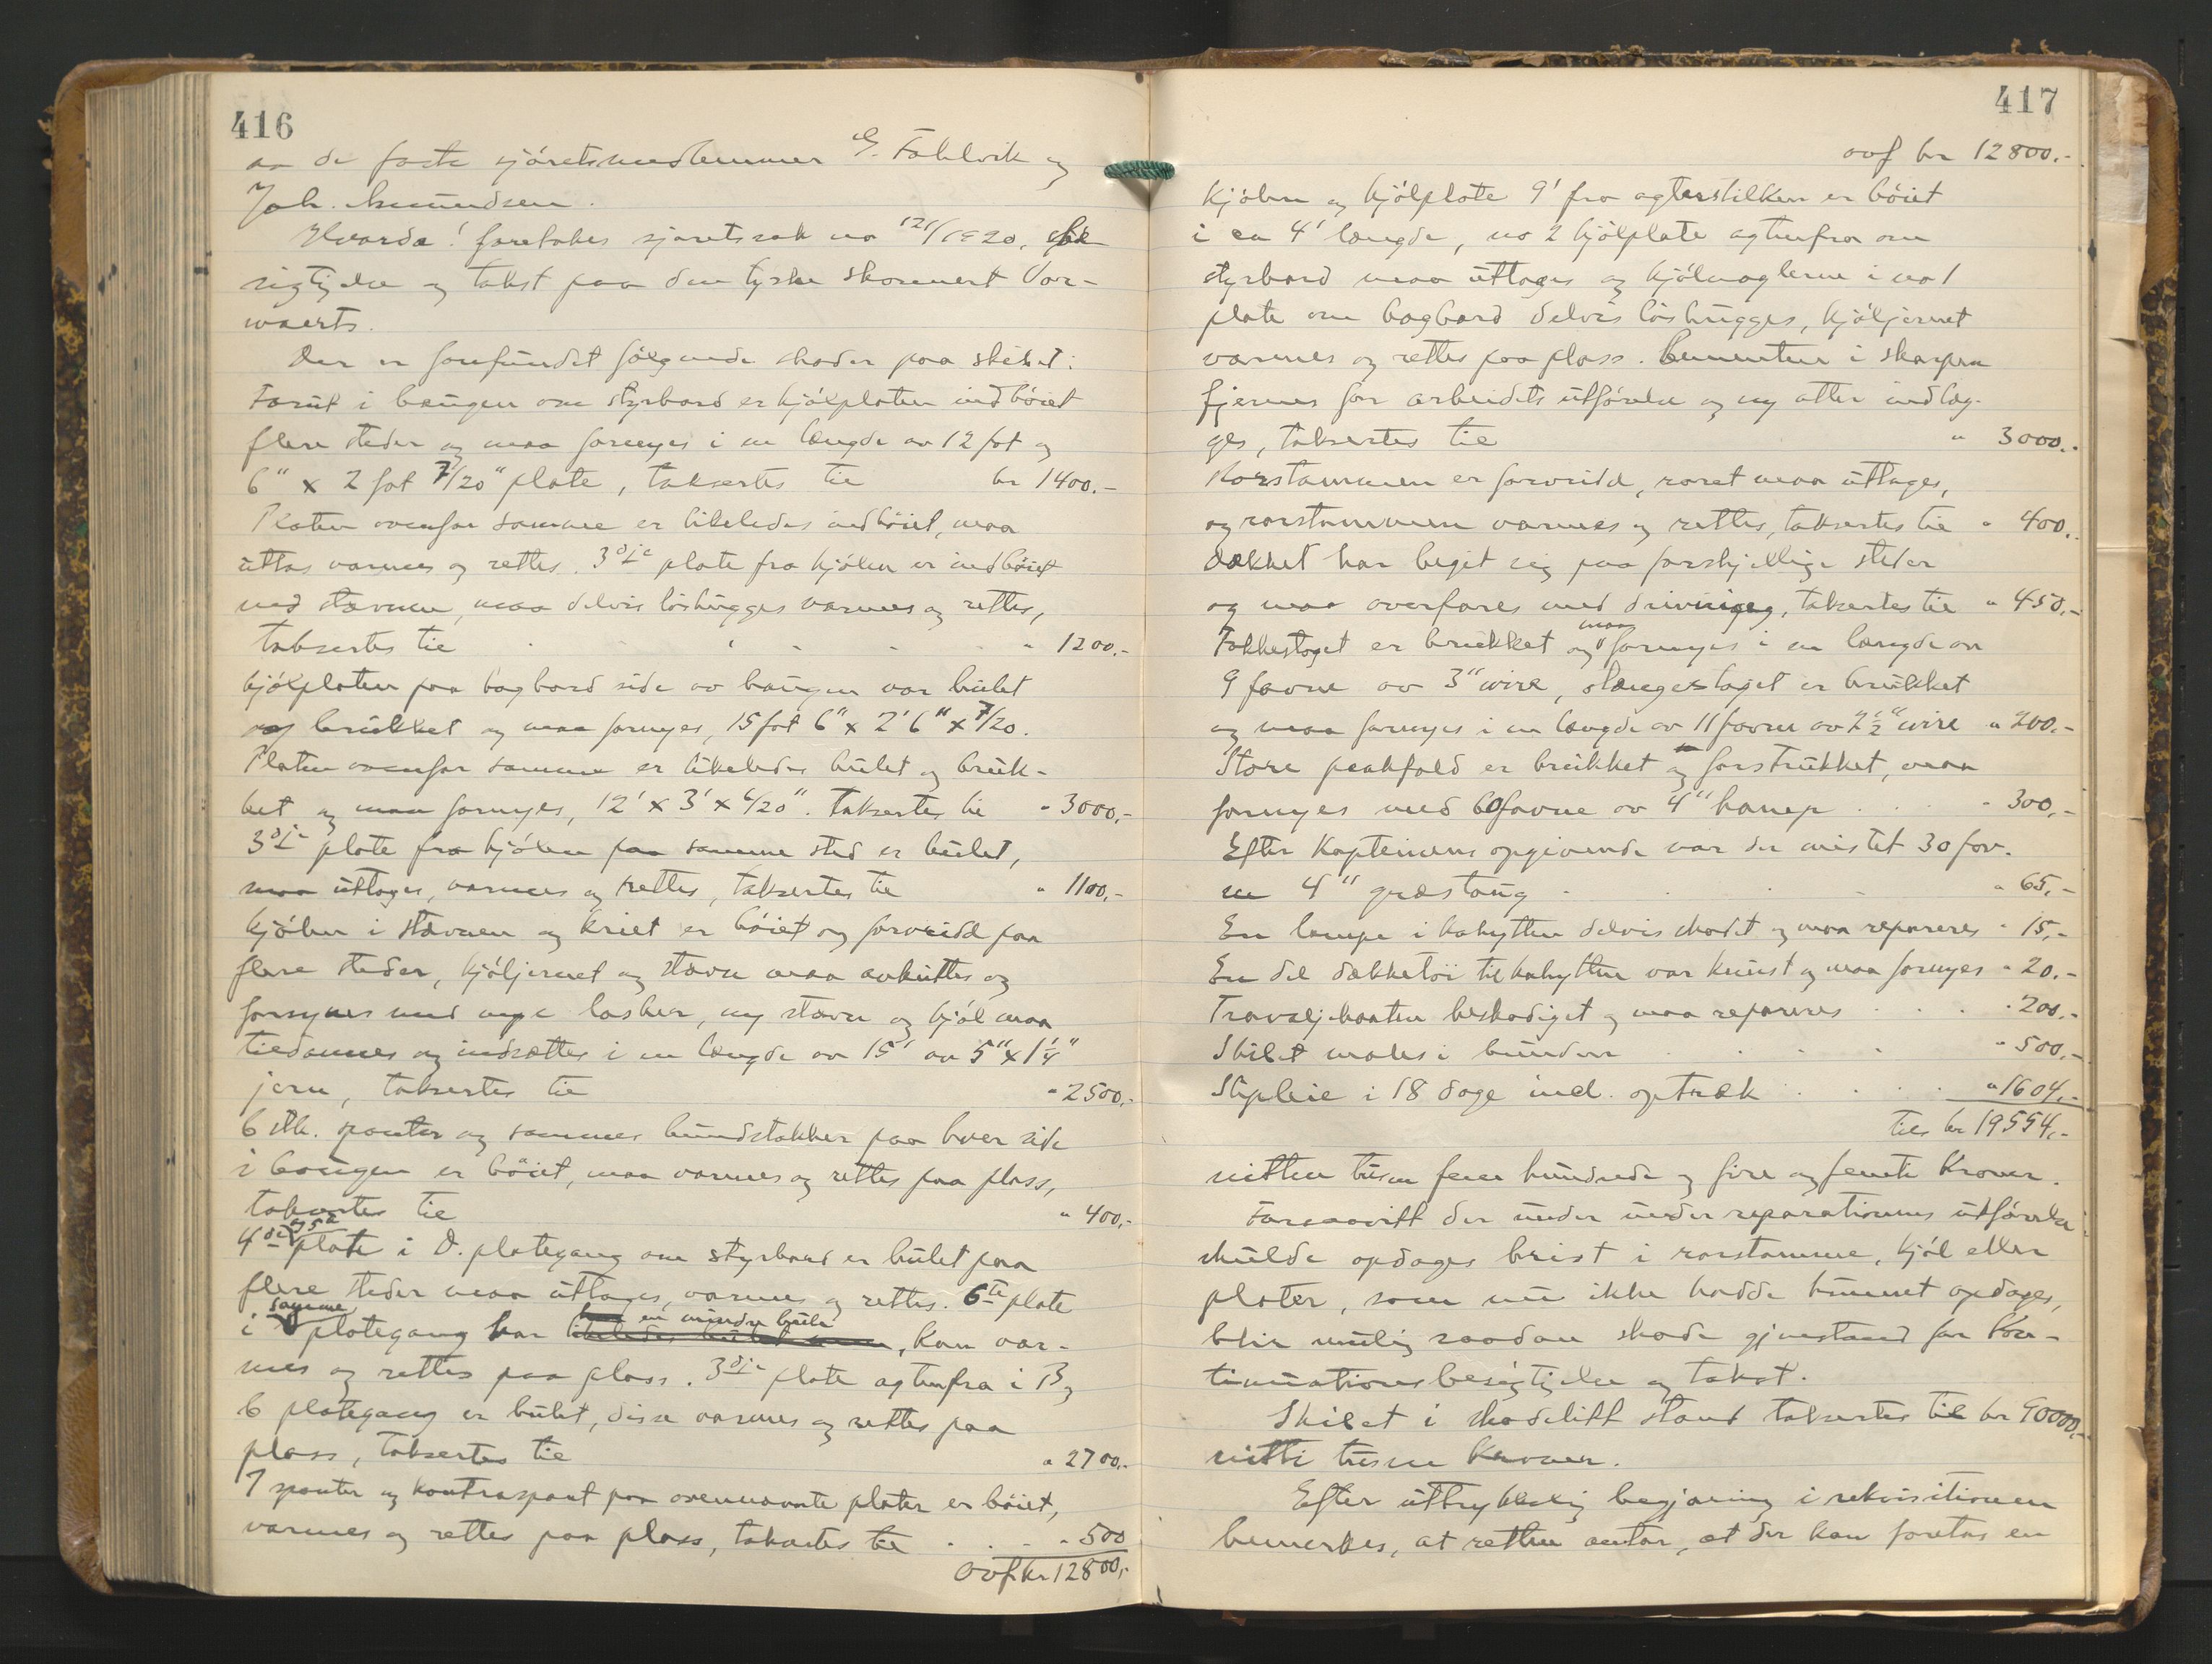 416
av de faste sjøretsmedlemmer G. Fahlvik og
Joh. Amundsen.
Hvorda! foretokes sjøretssak no 121/1920, besik-
sigtigelse og takst paa den tyske skonnert Vor-
waerts.
Der er forefundet følgende skader paa skibet:
Forut i baugen om styrbord er kjølplaten indbøiet
flere steder og maa fornyes i en længde av 12 fot og
6" x 2 fot 7/20" plate, taksertes til kr 1400.-
Platen ovenfor samme er likeledes indbøiet, maa
uttas varmes og rettes. 3dje plate fra kjølen er indbøiet
ved stævnen, maa delvis løshugges varmes og rettes,
taksertes til " 1200.-
Kjølplaten paa bagbord side av baugen var bulet
og brukket og maa fornyes, 15 fot 6" x 2' 6" x 7/20.
Platen ovenfor samme er likeledes bulet og bruk-
ket og maa fornyes, 12' x 3' x 6/20". Taksertes til " 3000,-
3dje plate fra kjølen paa samme sted er bulet,
maa uttages, varmes og rettes, taksertes til " 1100,-
Kjølen i stævnen og kneet er bøiet og forvridd paa
flere steder, kjøljernet og stævn maa avkuttes og
forsynes med nye lasker, ny stævn og kjøl maa
tildannes og indsættes i en længde av 15' av 5" x 1 1/4"
jern, taksertes til " 2500,-
6 stk. spanter og sammes bundstokker paa hver side
i baugen er bøiet, maa varmes og rettes paa plass,
taksertes til " 400,-
4de og 5te plate i D. plategang om styrbord er bulet paa
flere steder maa uttages, varmes og rettes. 6te plate
i samme plategang har en mindre bule, kan var-
mes og rettes paa plass. 3dje plate agtenfra i B og
6 plategang er bulet, disse varmes og rettes paa
plass, taksertes til " 2700.-
7 spanter og kontraspant paa ovennævnte plater er bøiet,
varmes og rettes paa plass, taksertes til " 500
Ovf. kr 12800,-
417
ovf kr 12800.-
Kjølen og kjølplate 9' fra agterstilken er bøiet
i en 4' længde, no 2 kjølplate agtenfra om
styrbord maa uttages og kjølnaglerne i no 1
plate om bagbord delvis løshugges, kjøljernet
varmes og rettes paa plass. Cementen i skarpen
fjernes for arbeidets utførelse og ny atter indlæg-
ges, taksertes til " 3000.-
Rorstammen er forvridd, roret maa uttages,
og rorstammen varmes og rettes, taksertes til " 400.-
Dækket har beget sig paa forskjellige steder
og maa overfares med drivning, taksertes til " 450,-
Fokkestaget er brukket og maa fornyes i en længde av
9 favne av 3" wire, stængestaget er brukket
og maa fornyes i en længde av 11 favne av 2 1/2" wire " 200.-
Store peakfald er brukket og forstrukket, maa
fornyes med 60 favne av 4" hamp " 300,-
Efter kapteinens opgivende var der mistet 30 fav-
ne 4" græstaug " 65,-
En lampe i kahytten delvis skadet og maa repareres " 15,-
En del dækketøi til kahytten var knust og maa fornyes " 20.-
Travaljebaaten beskadiget og maa repareres " 200.-
Skibet males i bunden " 500,-
Slipleie i 18 dage incl. optræk " 1604,-
Tils kr 19554,-
nitten tusen fem hundrede og fire og femti Kroner.
Forsaavitt der under under reparationens utførelse
skulde opdages brist i rorstamme, kjøl eller
plater, som nu ikke hadde kunnet opdages,
blir mulig saadan skade gjenstand for kon-
tinuationsbesigtigelse og takst.
Skibet i skadelitt stand taksertes til kr 90000,-
nitti tusen Kroner.
Efter uttrykkelig begjæring i rekvisitionen
bemerkes, at retten antar, at der kan foretas en